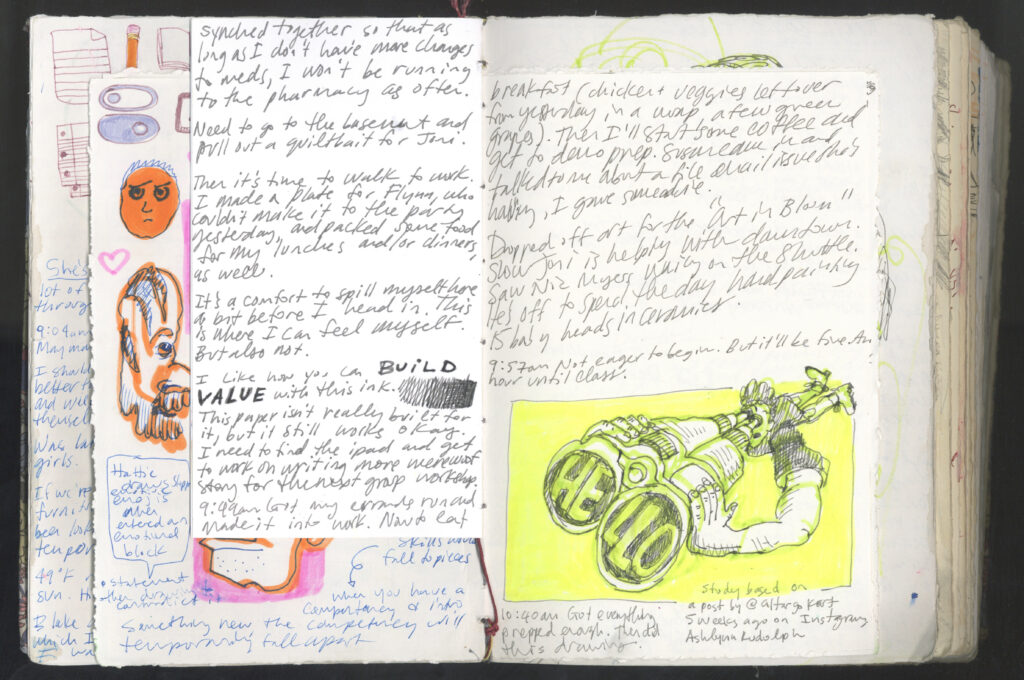 synched together so that as
long as I don't have more changes
to meds, I won't be running
to the pharmacy as often.
Need to go to the basement and
pull out a quilt bait for Joni.
Then it's time to walk to work.
I made a plate for Flynn, who
couldn't make it to the party
yesterday, and packed some food
for my lunches and/or dinners,
as well.
It's a comfort to spill myself here
a bit before I head in. This
is where I can feel myself.
But also not.
I like how you can BUILD
VALUE with this ink.
This paper isn't really built for
it, but it still works okay.
I need to find the ipad and get
to work on writing more werewolf
story for the next group workshop.
9:49am Got my errands run and
made it into work. Now to eat
She's
lot of
through
9:04am
May
I should
better
and
themselves
Was
girls.
If we're
turn
been
49°F
sun.
I like
which I
Hattie draws
emojis
when
entered an
emotional
block
• Statement
then drawing to
contradict it
skills would
fall to pieces
when you have a
competancy & intro
something new the competency will
temporarily fall apart
breakfast (chicken + veggies leftover
from yesterday in a wrap, a few green
grapes). Then I'll start some coffee and
get to demo prep.
talked to me about a file email issue she's
having, I gave some advice.
Dropped off art for the "Art in Bloom"
show Joni is helping with downtown.
Saw Nic waiting on the Shuttle.
He's off to spend the day hand painting
15 baby heads in ceramics.
9:57am Not eager to begin. But it'll be fine. An
hour until class.
HE
LLO
Study based on
a post by
5 weeks ago on Instagram
Ashlynn Rudolph
10:40am Got everything
prepped enough. Then did
this drawing.